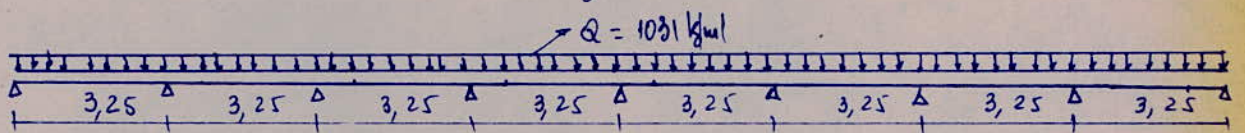 Q = 1031 kg/ml
3,25 3,25 3,25 3,25 3,25 3,25 3,25 3,25